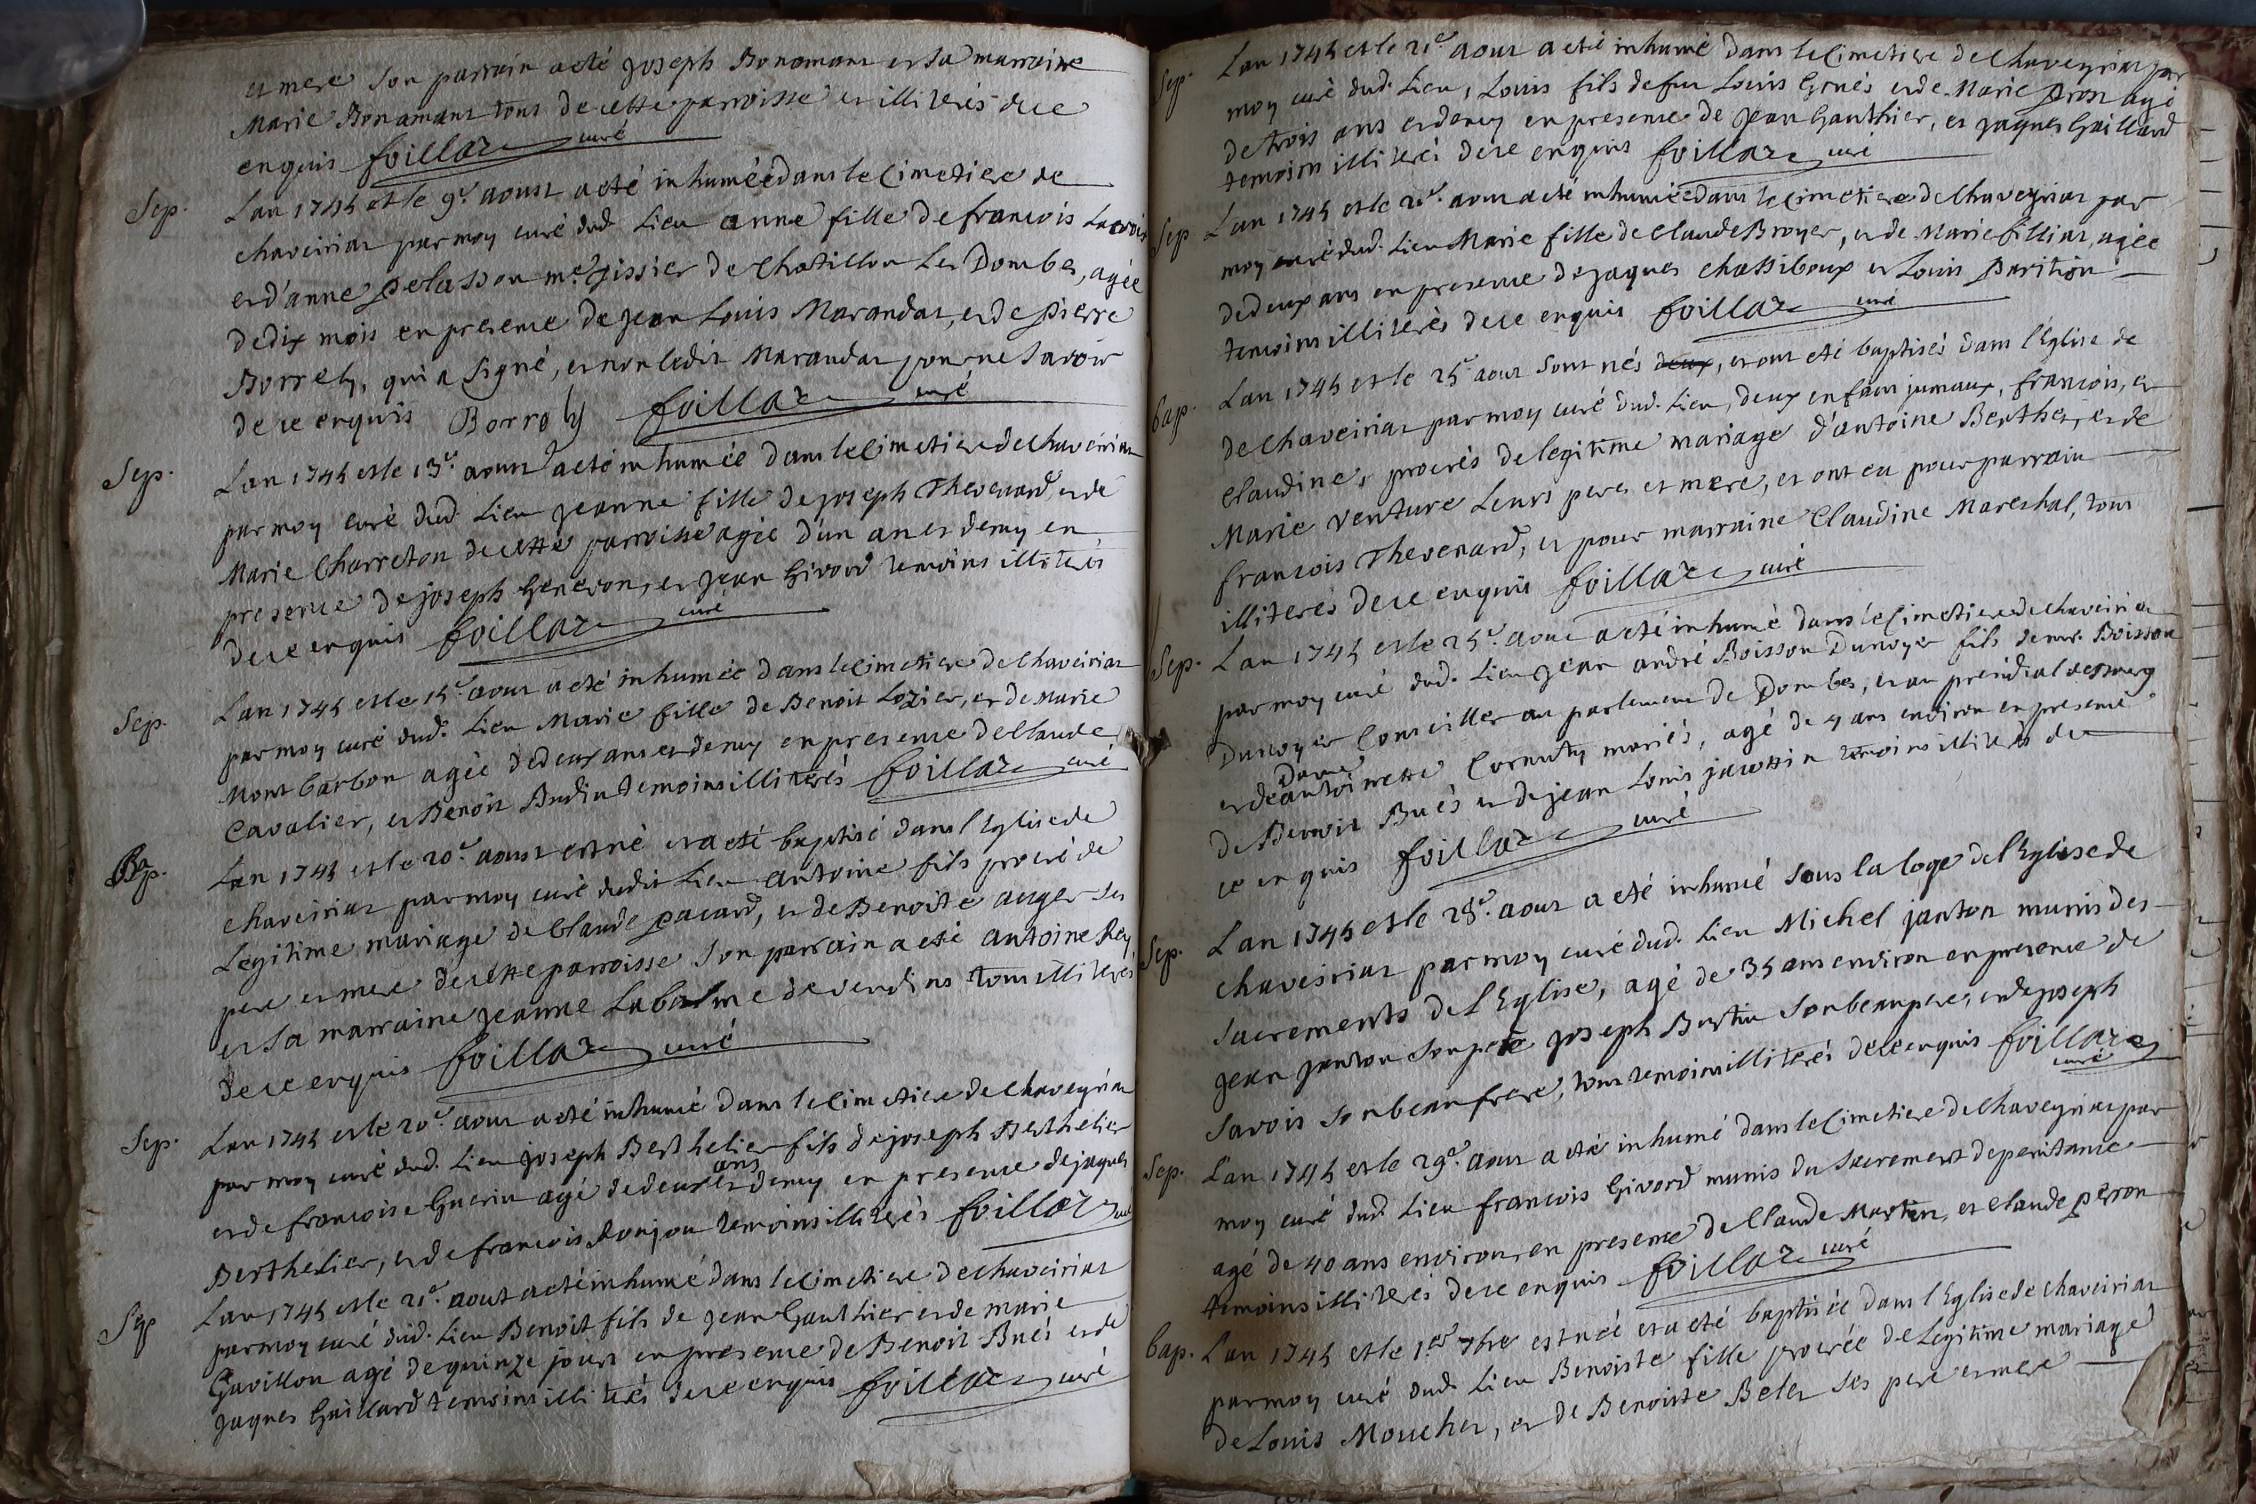 et mere son parrain a eté Joseph Bonamant et sa marraine
Marie Bonamant tous de cette parroisse et illiterés de ce
enquis foillaz curé
Sep. Lan 1745 et le 9e aoust a eté inhumée dans le Cimetiere de
chaveiriat par moy curé dud. Lieu anne fille de francois
et d'anne pelasson me de Chatillon Les Dombes, agée
de dix mois en presence de Jean Louis Marandat, et de pierre
Borrely, qui a signé, et non ledit Marandat pour ne savoir
de ce enquis Borroly foillaz curé
Sep. Lan 1745 et le 13e aoust a eté inhumée dans le Cimetiere de Chaveiriat
par moy curé dud. Lieu Jeanne fille de joseph Thevenard et de
Marie Charreton de cette parroisse agée d'un an et demy en
presence de joseph Geneson, et jean Givord temoins illiterés
de ce enquis foillaz curé
Sep. Lan 1745 et le 15e aout a eté inhumée dans le Cimetiere de Chaveiriat
par moy curé dud. Lieu Marie fille de Benoit Lozier, et de Marie
Montbarbon agée de deux ans et demy en presence de Claude
Cavalier, et Benoit Budin temoins illiterés foillaz curé
Bap. Lan 1745 et le 20e aoust est né et a eté baptisé dans l'Eglise de
chaveiriat par moy curé dudit Lieu antoine fils procré de
Legitime mariage de Claude pacard, et de Benoite auger ses
pere et mere de cette parroisse son parrain a eté antoine Rey
et sa marraine Jeanne Labalme de vendins tous illiterés
de ce enquis foillaz curé
Sep. Lan 1745 et le 20e aout a eté inhumé dans le Cimetiere de Chaveyriat
par moy curé dud. Lieu joseph Berthelier fils de joseph Berthelier
et de francoise Guerin agé de deux ans et demy en presence de jaques
Berthelier, et de francois Ronjon temoins illiterés foillaz curé
Sep Lan 1745 et le 21e aout a eté inhumé dans le Cimetiere de chaveiriat
par moy curé dud. Lieu Benoit fils de Jean Gauthier et de marie
Gavillon agé de quinze jours en presence de Benoit Bués et de
Jaques Gaillard temoins illiterés de ce enquis foillaz curé
Sep. Lan 1745 et le 21e aout a eté inhumé dans le Cimetiere de Chaveyriat par
moy curé dud. Lieu, Louis fils de feu Louis Gonés et de Marie pron agé
de trois ans et demy en presence de Jean Gauthier, et Jaques Gaillard
temoins illiterés de ce enquis foillaz curé
Sep Lan 1745 et le 21e aout a eté inhumée dans le Cimetiere de Chaveyriat par
moy curé dud. Lieu Marie fille de Claude Broyer, et de Marie filliat, agée
de deux ans en presence de Jaques Chassiboux et Louis parition
temoins illiterés de ce enquis foillaz curé
bap. Lan 1745 et le 25e aout sont nés deux, et ont eté baptisés dans l'Eglise de
de Chaveiriat par moy curé dud. Lieu, deux enfans jumaux, francois, et
Claudine, procrés de legitime mariage d'antoine Berthet, et de
Marie Venture Leurs pere et mere, et ont eu pour parrain
francois Thevenard, et pour marraine Claudine Mareschal, tous
illiterés de ce enquis foillaz curé
Sep. Lan 1745 et le 25e aout a eté inhumé dans le Cimetiere de chaveiria
par moy curé dud. Lieu Jean andré Boisson Dunoyer fils de mr. Boisson
Dunoyer Conseiller au parlement de Dombes, et au presidial de Bourg
et de Dame antoinette Cornuty mariés, agé de 4 ans environ en presence
de Benoit Bués et de jean Louis jacottin temoins illiterés de
ce enquis foillaz curé
Sep. Lan 1745 et le 28e aout a eté inhumé sous la loge de l'Eglise de
chaveiriat par moy curé dud. Lieu Michel janton munis des
sacrements de l'Eglise, agé de 35 ans environ en presence de
Jean janton son pere joseph Bertin son beaupere, et de joseph
Savois son beaufrere, tous temoins illiterés de ce enquis foillaz
curé
Sep. Lan 1745 et le 29e aout a eté inhumé dans le Cimetiere de Chaveyriat par
moy curé dud. Lieu francois Givord munis du sacrement de penitance
agé de 40 ans environ en presence de Claude Martin, et Claude peron
temoins illiterés de ce enquis foillaz curé
bap. Lan 1745 et le 1er 7bre est née et a eté baptisée dans l'Eglise de chaveiriat
par moy curé dud. Lieu Benoiste fille procrée de Legitime mariage
de Louis Mouchet, et de Benoiste Belet ses pere et mere